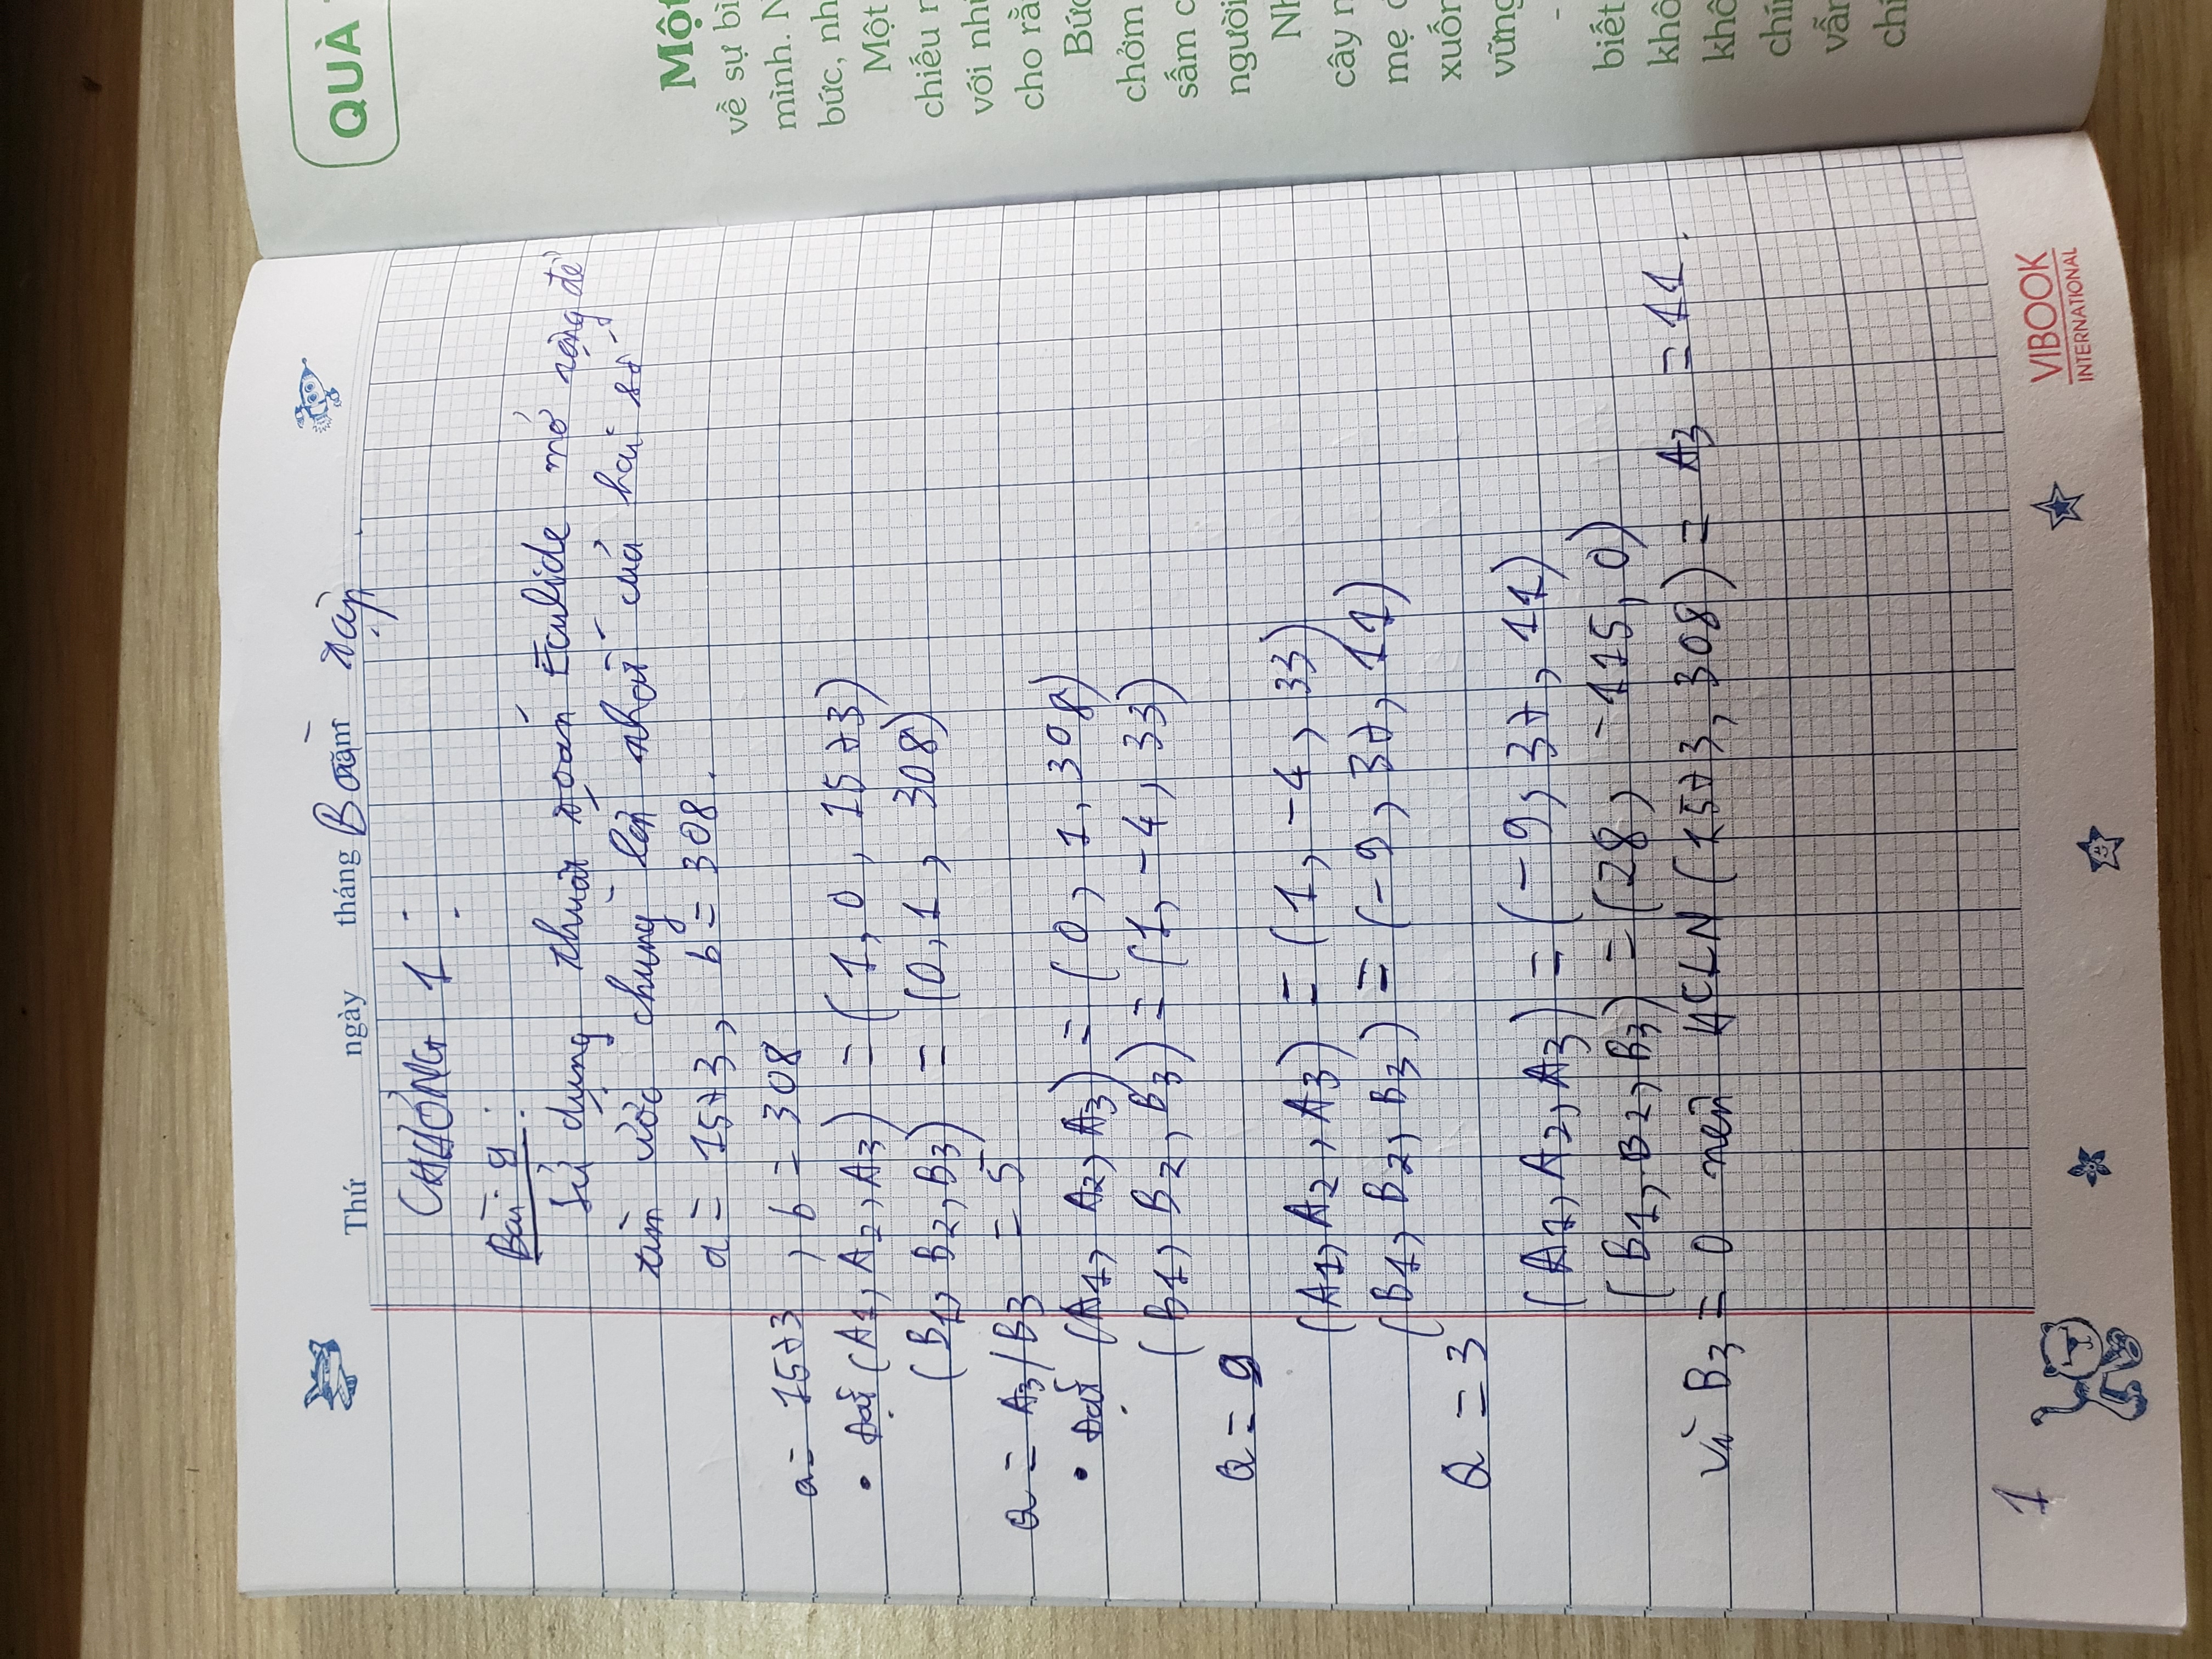 Thứ ngày tháng năm
Bài tập
CHƯƠNG 1 :
Bài 9 :
Sử dụng thuật toán Eculide mở rộng để
tìm ước chung lớn nhất của hai số
a = 1573, b = 308.
a = 1573, b = 308
• Đặt (A1, A2, A3) = (1, 0, 1573)
(B1, B2, B3) = (0, 1, 308)
Q = A3/B3 = 5
• Đặt (A1, A2, A3) = (0, 1, 308)
(B1, B2, B3) = (1, -4, 33)
Q = 9
(A1, A2, A3) = (1, -4, 33)
(B1, B2, B3) = (-9, 37, 11)
Q = 3
(A1, A2, A3) = (-9, 37, 11)
(B1, B2, B3) = (28, -115, 0)
Vì B3 = 0 nên ƯCLN (1573, 308) = A3 = 11.
1
VIBOOK
INTERNATIONAL
QUÀ
Một
về sự bì
mình. N
bức, nh
Một
chiếu
với nh
cho rằ
Bức
chởm
sấm c
người
Nh
cây
mẹ
xuốn
vững
-
biết
khô
khô
chí
vẫn
chí